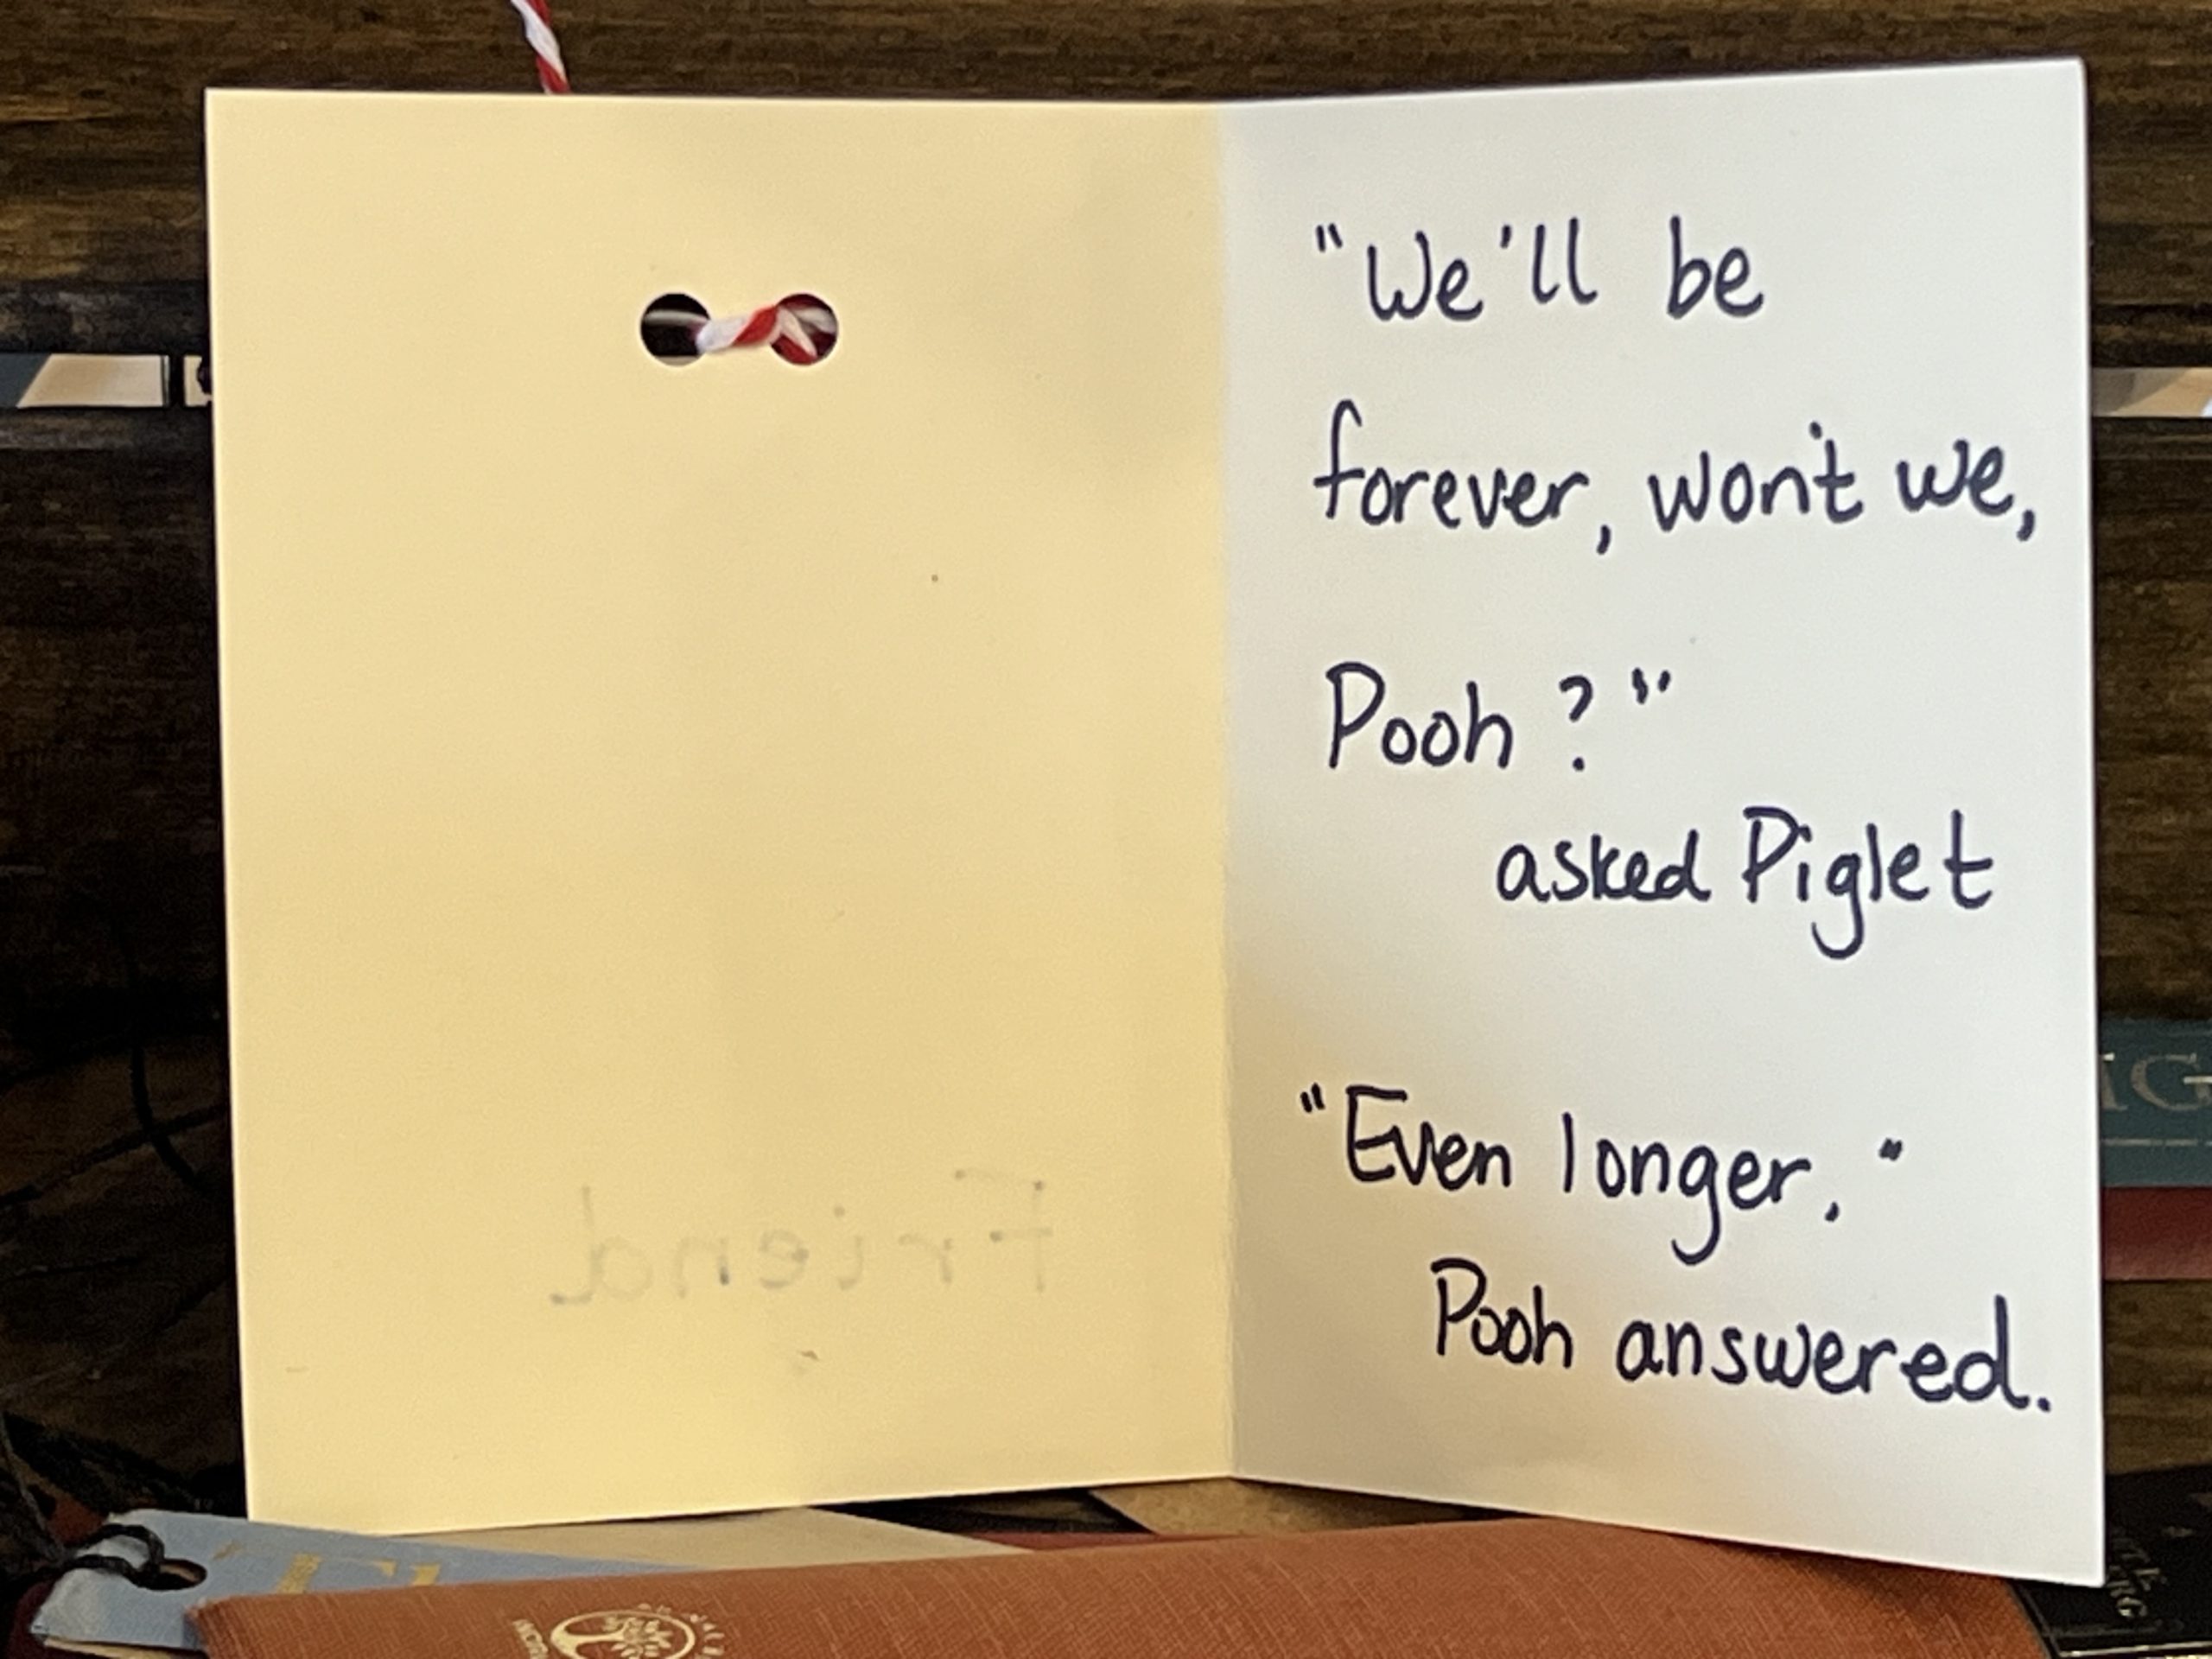 Friend
"We'll be
forever, won't we,
Pooh?"
asked Piglet
"Even longer."
Pooh answered.